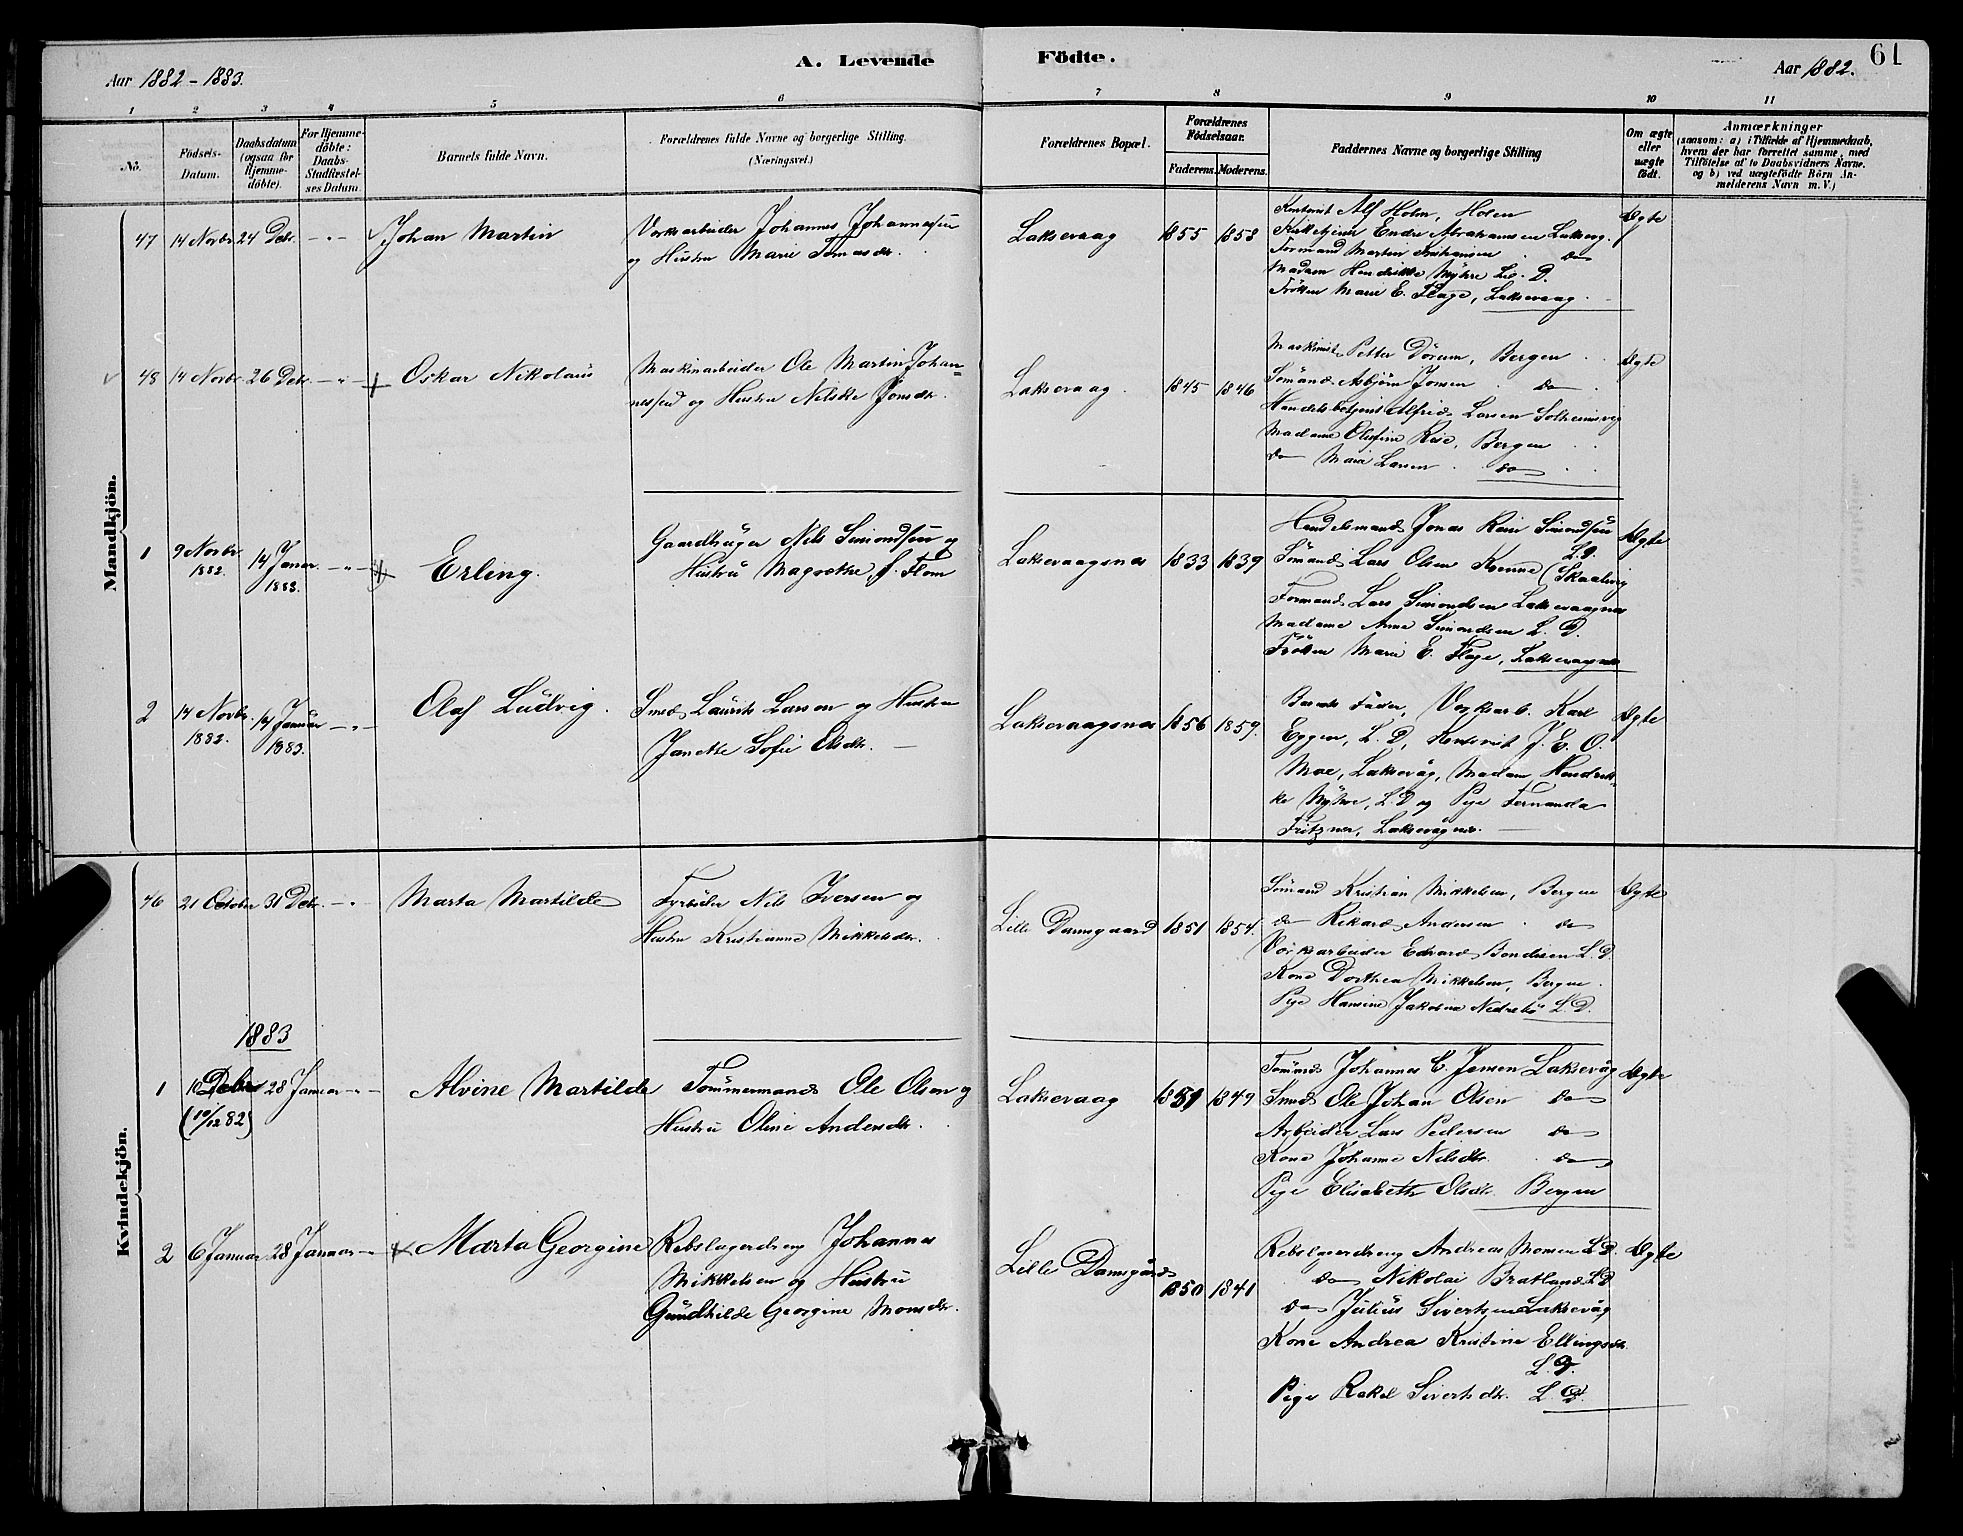 Aar 1882-1883.
A. Levende Födte.
Aar 1882.
61
1 2 3 4 5 6 7 8 9 10 11
No.
Födsels-Datum.
Daabsdatum (ogsaa for Hjemme-döbte).
For Hjemme-döbte: Daabs-Stadfæstel-ses Datum.
Barnets fulde Navn.
Forældrenes fulde Navne og borgerlige Stilling.
(Næringsvei.)
Forældrenes Bopæl.
Forældrenes Födselsaar.
Faderens. Moderens.
Faddernes Navne og borgerlige Stilling
Om ægte eller uægte födt.
Anmærkninger
(saasom: a) i Tilfælde af Hjemmedaab,
hvem der har forrettet samme, med
Tilföielse af to Daabsvidners Navne.
og b) ved uægtefödte Börn An-
melderens Navn m. V.)
Mandkjön.
47 14 Novbr. 24 Debr. - " - Johan Martin
Værksarbeider Johannes Johannessen
og Hustru Marie Tomasdr.
Laksevaag 1855 1858
Kontorist Alf Holm, Holen
Kirketjener Endre Abrahamsen Laksevg.
Formand Martin Kristiansen do
Madam Hendrikke Myhre L. D.
Fröken Marie E. Flage, Laksevaag.
Ægte
48 14 Novbr. 26 Debr. - " - Oskar Nikolaus
Maskinarbeider Ole Martin Johan-
nessen og Hustru Nilske Jonsdr.
Laksevaag. 1845 1846
Maskinist Petter Dörum, Bergen
Sömand Asbjörn Jonsen do
Handelsbetjent Alfred Larsen Solheimsvig
Madame Olufine Rise, Bergen
do Marie Larsen do
Ægte
1 9 Novbr. 1882. 14 Januar. 1883. - " - Erling.
Gaardbruger Nils Simondsen og
Hustru Magrethe, f. Flom
Laksevaagsnes 1833 1839
Handelsmand Jonas Rein Simondsen
L.D.
Sömand Lars Olsen Kvenne (Skaalevig
Formand Lars Simondsen Laksevaagnes
Madame Anna Simondsen L. D.
Fröken Marie E. Flage, Laksevaagnes
Ægte
2 14 Novbr. 1882. 14 Januar 1883. - " - Olaf Ludvig.
Smed Laurits Larsen og Hustru
Janette Sofie Olsdr.
Laksevaagsnes 1856 1859.
Barnets Fader, Værksarb. Karl
Eggen, L. D, Kontorist J. E. O.
Moe, Laksevåg, Madam Hendrik-
ke Myhre, L. D og Pige Fernanda
Fritzner, Laksevagnes.
Ægte
Kvindekjön.
46 21 October 31 Debr. - " - Marta Martilde
Arbeider Nils Iversen og
Hustru Kristianne Mikkelsdr.
Lille Damsgaard 1851 1854.
Sömand Kristian Mikkelsen, Bergen
do Rikard Andersen do
Værksarbeider Edvard Bendixen L. D.
Kone Dorthea Mikkelsen, Bergen
Pige Hansine Jakobine Nedrebö L. D.
Ægte
1883
1 10 Debr (10/12 82) 28 Januar - " - Alvine Martilde
Tömmermand Ole Olsen og
Hustru Oline Andersdr.
Laksevaag 1851 1849
Tömmd. Johannes C. Jensen Laksevåg
Smed Ole Johan Olsen do
Arbeider Lars Pedersen do
Kone Johanne Nilsdtr. do
Pige Elisabeth Olsdr. Bergen
Ægte
2 6 Januar 28 Januar - " - Marta Georgine
Rebslagerdreng Johannes
Mikkelsen og Hustru
Gundhilde Georgine Monsdr.
Lille Damsgård 1850 1841
Rebslagerdreng Andreas Monsen L. D.
do Nikolai Bratland L D
do Julius Sivertsen Laksevåg
Kone Andrea Kristine Ellingsdr.
L. D.
Pige Rakel Sivertsdr. L. D.
Ægte